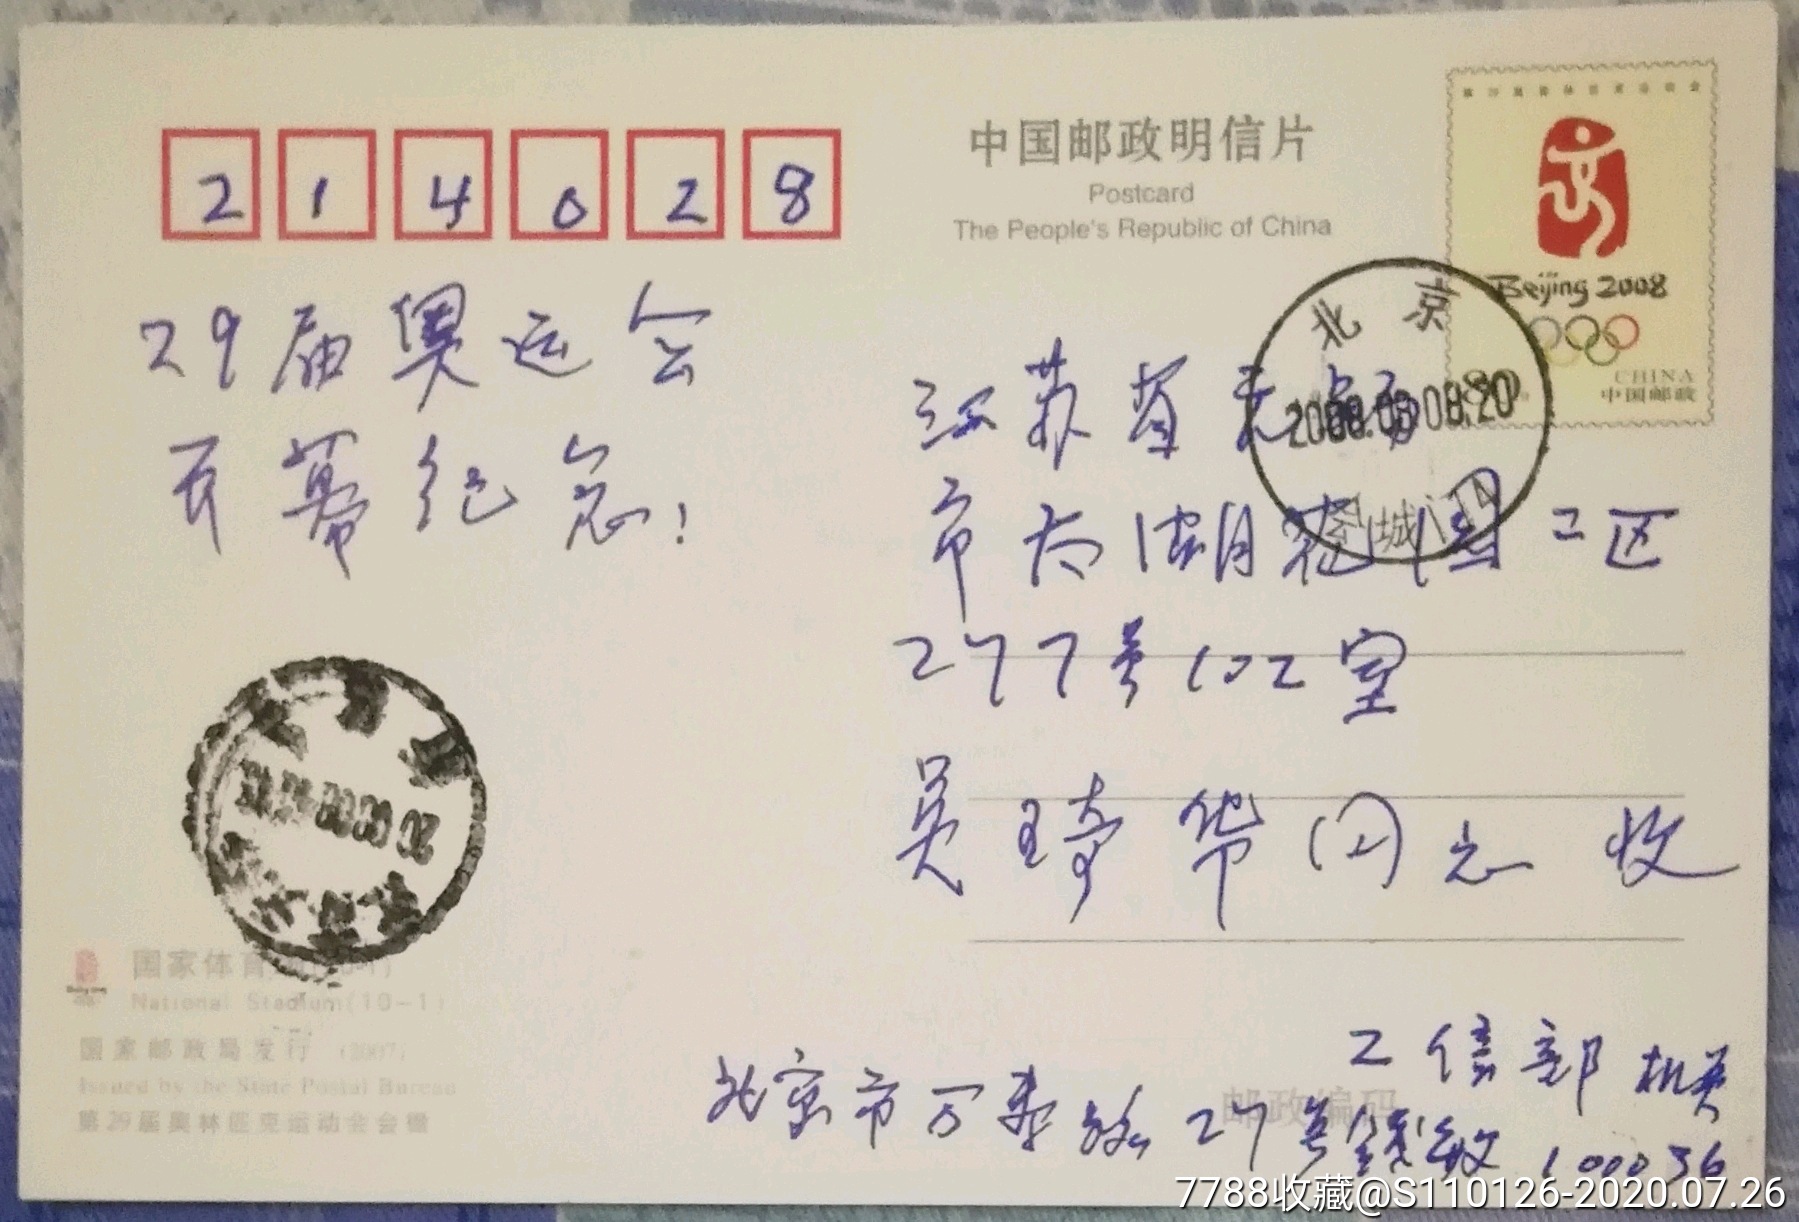 第29届奥林匹克运动会
中国邮政明信片
Postcard
The People's Republic of China
214028
Beijing 2008
CHINA
中国邮政
北京
29届奥运会
开幕纪念!
江苏省无锡
市太湖花园二区
277号102室
吴琦华同志 收
国家体育
National Stadium(10-1)
国家邮政局发行 (2007)
Issued by the State Postal Bureau
第29届奥林匹克运动会会徽
工信部机关
北京市万寿路27号 100036
邮政编码
7788收藏@S110126-2020.07.26